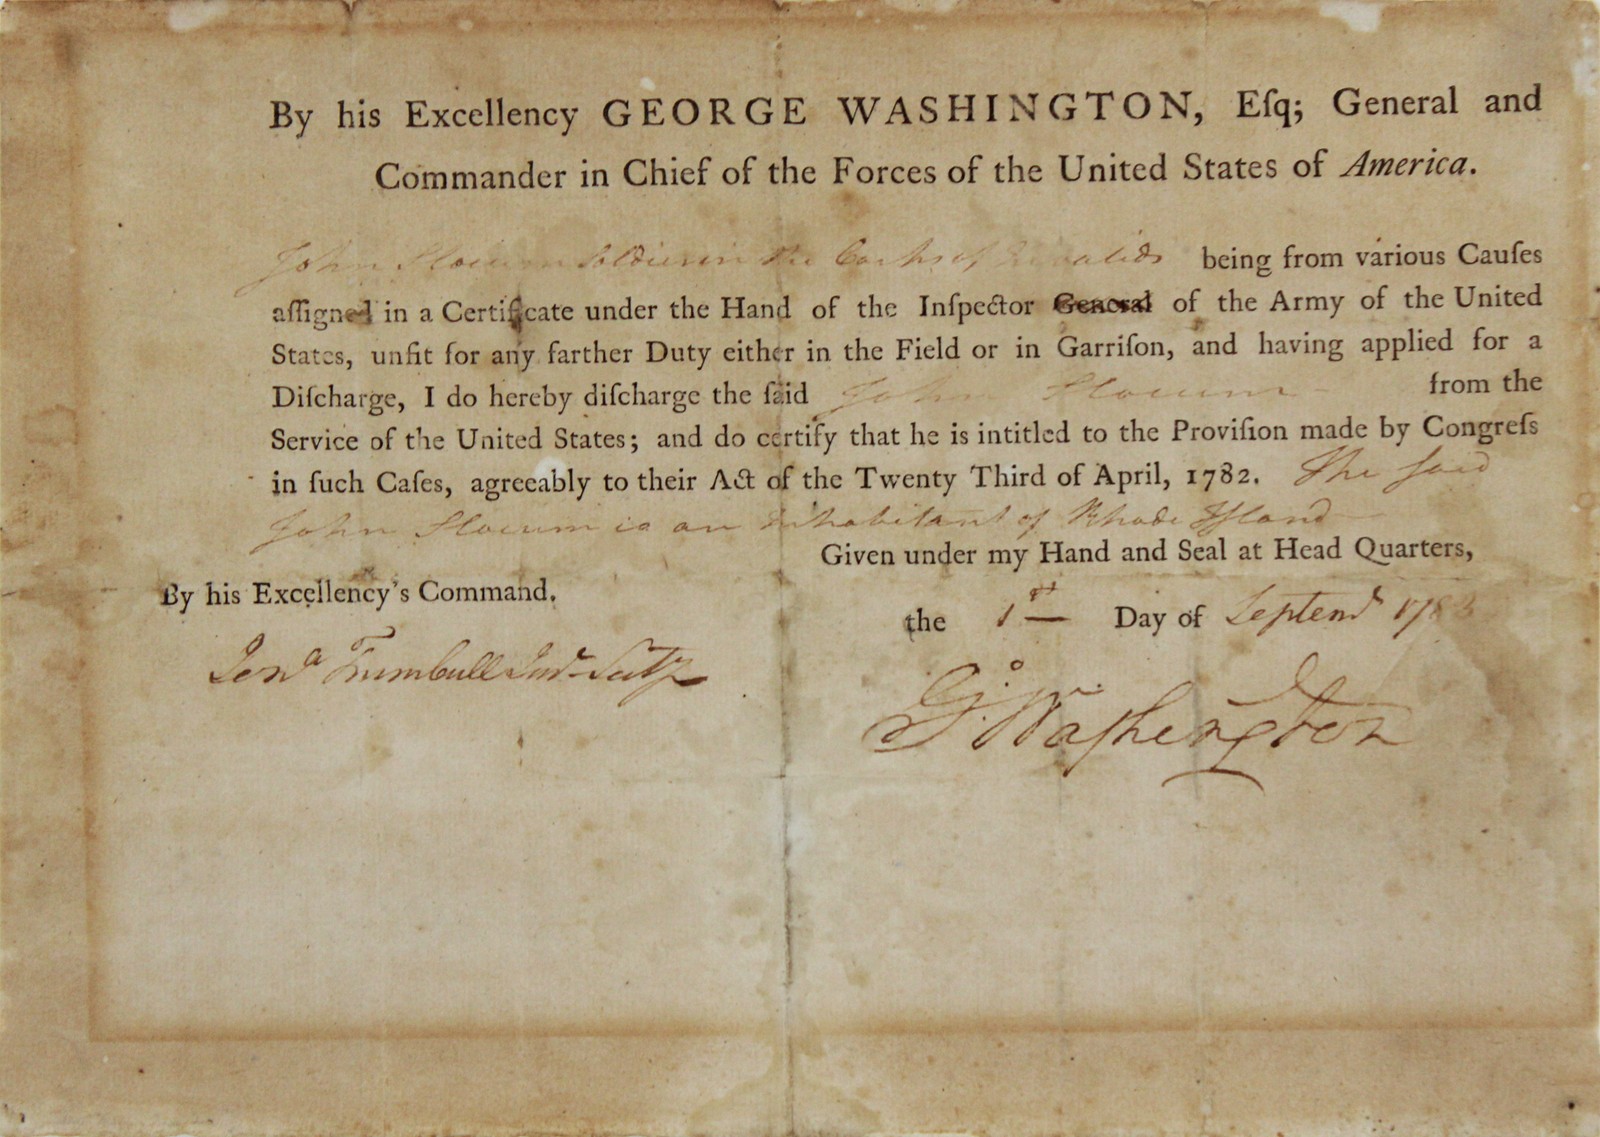 By his Excellency GEORGE WASHINGTON, Eſq; General and
Commander in Chief of the Forces of the United States of America.
John Slocum Soldier in the Corps of Invalids being from various Cauſes
aſſigned in a Certificate under the Hand of the Inſpector General of the Army of the United
States, unfit for any farther Duty either in the Field or in Garriſon, and having applied for a
Diſcharge, I do hereby diſcharge the ſaid John Slocum from the
Service of the United States; and do certify that he is intitled to the Proviſion made by Congreſs
in ſuch Caſes, agreeably to their Act of the Twenty Third of April, 1782. The ſaid
John Slocum is an inhabitant of Rhode Iſland
Given under my Hand and Seal at Head Quarters,
By his Excellency's Command.
the 1st Day of Septemr 1783
Jona Trumbull Junr Secty
Go: Washington